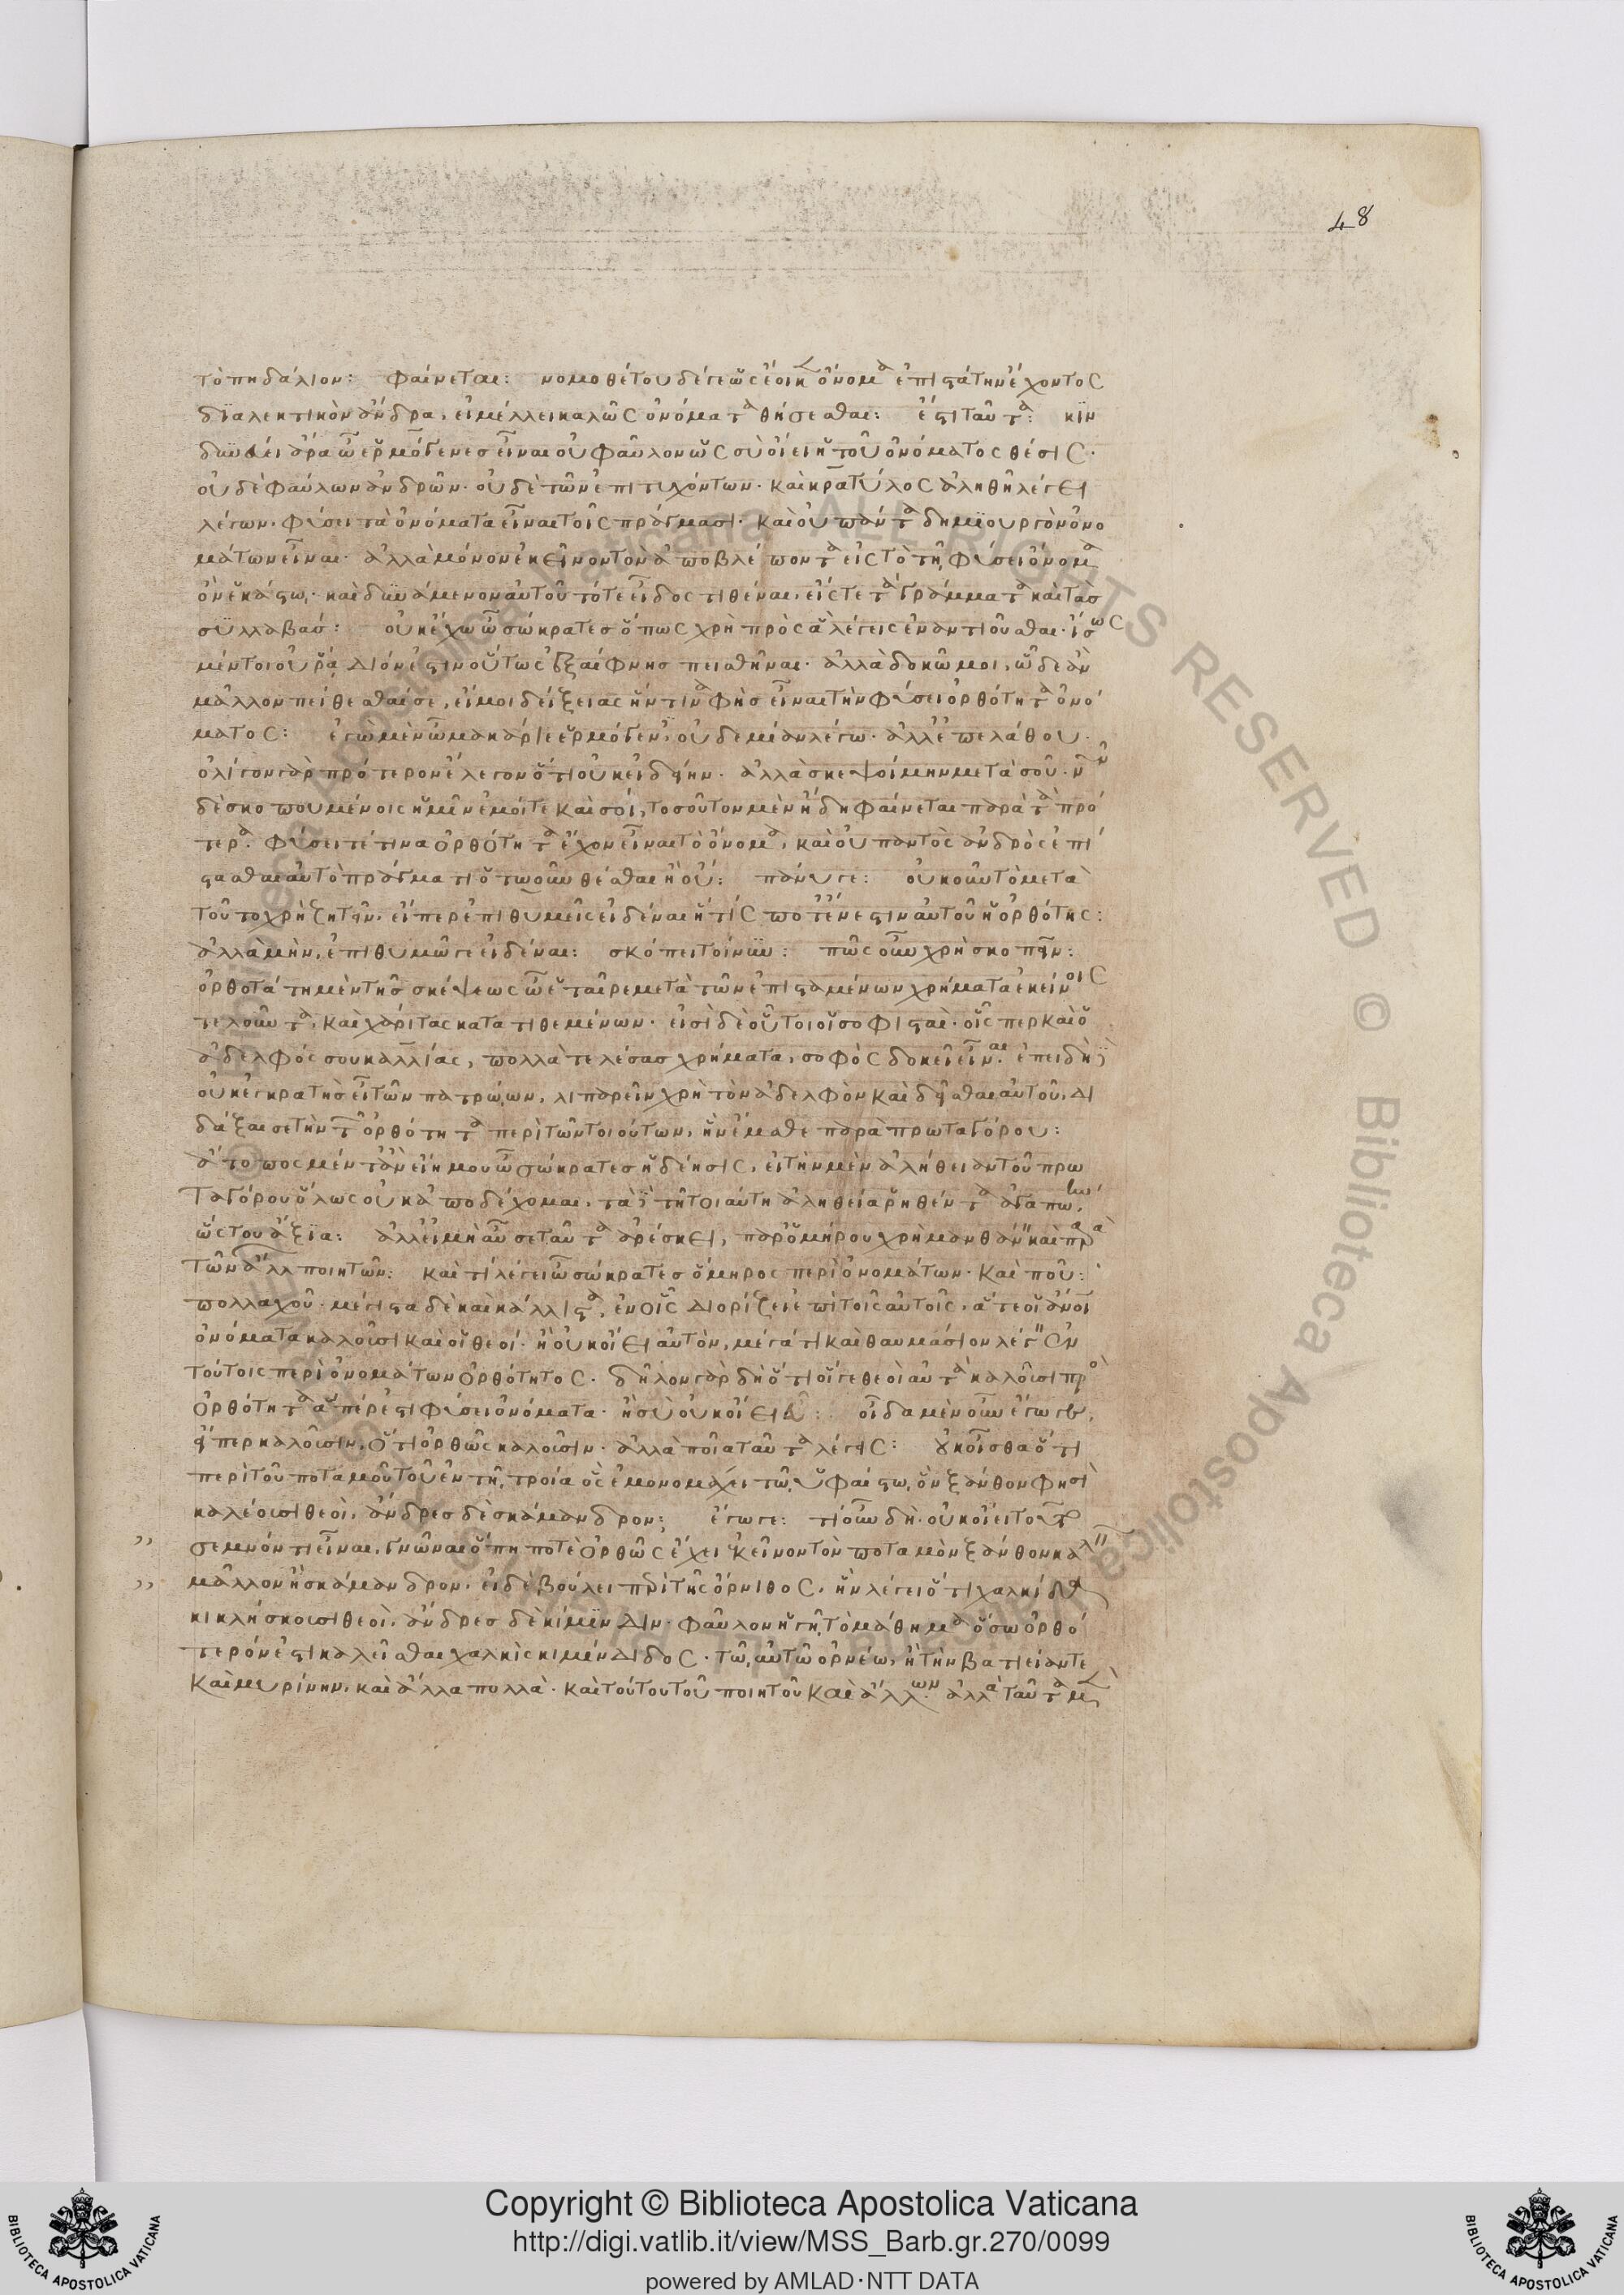 48
τὸ πηδάλιον: φαίνεται: νομοθέτου δέ γε ὡς ἔοικ ὄνομα ἐπιστάτην ἔχοντος
διαλεκτικὸν ἄνδρα, εἰ μέλλει καλῶς ὀνόματα θήσεσθαι: ἔστι ταῦτα: κϊν
δυνεύει ἄρα ὦ ἑρμόγενες εἶναι οὐ φαῦλον ὡς σὺ οἴει ἡ τοῦ ὀνόματος θέσις·
οὐδὲ φαύλων ἀνδρῶν· οὐδὲ τῶν ἐπιτυχόντων· καὶ κρατύλος ἀληθῆ λέγει
λέγων· φύσει τὰ ὀνόματα εἶναι τοῖς πράγμασι· καὶ οὐ πάντα δημϊουργὸν ὀνο
μάτων εἶναι· ἀλλὰ μόνον ἐκεῖνον τὸν ἀποβλέποντα εἰς τὸ τῆ φύσει ὄνομα
ὂν ἑκάστω· καὶ δυνάμενον αὐτοῦ τό τε εἶδος τιθέναι, εἴς τε τὰ γράμματα καὶ τὰς
συλλαβάς: οὐκ ἔχω ὦ σώκρατες ὅπως χρὴ πρὸς ἃ λέγεις ἐναντιοῦσθαι· ἴσως
μέντοι οὐ ῥάδιόν ἐστιν οὕτως ἐξαίφνης πεισθῆναι· ἀλλὰ δοκῶ μοι, ὧδε ἂν
μᾶλλον πείθεσθαί σε, εἴ μοι δείξειας ἥντινα φὴς εἶναι τὴν φύσει ὀρθότητα ὀνό
ματος: ἐγὼ μὲν ὦ μακάριε ἑρμόγεν, οὐδεμίαν λέγω· ἀλλ' ἐπελάθου·
ὀλίγον γὰρ πρότερον ἔλεγον ὅτι οὐκ εἰδείην· ἀλλὰ σκεψοίμην μετὰ σοῦ· νῦν
δὲ σκοπουμένοις ἡμῖν ἐμοί τε καὶ σοί, τοσοῦτον μὲν ἤδη φαίνεται παρὰ τὰ πρό
τερα· φύσει τέ τινα ὀρθότητα ἔχον εἶναι τὸ ὄνομα, καὶ οὐ παντὸς ἀνδρὸς ἐπί
στασθαι αὐτὸ πράγματι ὅτω οῦν θέσθαι ἢ οὔ: πάνυ γε: οὐκοῦν τὸ μετὰ
τοῦτο χρὴ ζητεῖν, εἴπερ ἐπιθυμεῖς εἰδέναι ἥτίς ποτ' ἔνεστιν αὐτοῦ ἡ ὀρθότης:
ἀλλὰ μὴν, ἐπιθυμῶ γε εἰδέναι: σκόπει τοίνυν: πῶς οὖν χρὴ σκοπεῖν:
ὀρθοτάτη μὲν τῆς σκέψεως ὦ ἑταῖρε μετὰ τῶν ἐπισταμένων χρήματα ἐκείνοις
τελοῦντα, καὶ χάριτας κατατιθεμένων· εἰσὶ δὲ οὗτοι οἱ σοφισταί· οἷς περ καὶ ὁ
ἀδελφός σου καλλίας, πολλὰ τελέσας χρήματα, σοφὸς δοκεῖ εἶναι· ἐπειδὴ
οὐκ ἐγκρατὴς εἶ τῶν πατρώων, λιπαρεῖν χρὴ τὸν ἀδελφὸν καὶ δεῖσθαι αὐτοῦ, δι
δάξαι σε τὴν τ ὀρθότητα περὶ τῶν τοιούτων, ἣν ἔμαθε παρὰ πρωταγόρου:
ἄτοπος μέν τ' ἂν εἴη μου ὦ σώκρατες ἡ δέησις, εἰ τὴν μὲν ἀλήθειαν τοῦ πρω
ταγόρου ὅλως οὐκ ἀποδέχομαι, τὰ τῆ τοιαύτη ἀληθεία ῥηθέντα ἀγαπώιην
ὥς του ἄξϊα: ἀλλ' εἰ μὴ αὖ σε ταῦτα ἀρέσκει, παρ' ὁμήρου χρὴ μανθάνειν καὶ παρὰ
τῶν ἄλλ ποιητῶν: καὶ τί λέγει ὦ σώκρατες ὅμηρος περὶ ὀνομάτων· καὶ ποῦ:
πολλαχοῦ· μέγιστα δὲ καὶ κάλλιστα, ἐν οἷς διορίζει ἐπὶ τοῖς αὐτοῖς, ἅ τε οἱ ἄνοι
ὀνόματα καλοῦσι καὶ οἱ θεοί· ἢ οὐκ οἴει αὐτὸν, μέγα τι καὶ θαυμάσιον λέγειν ἐν
τούτοις περὶ ὀνομάτων ὀρθότητος· δῆλον γὰρ δὴ ὅτι οἵ γε θεοὶ αὐτὰ καλοῦσι πρὸ
ὀρθότητα ἅπέρ ἐστι φύσει ὀνόματα· ἢ σὺ οὐκ οἴει: οἶδα μὲν οὖν ἔγωγε,
εἴπερ καλοῦσιν, ὅτι ὀρθῶς καλοῦσιν· ἀλλὰ ποῖα ταῦτα λέγεις: οὐκ οἶσθα ὅτι
περὶ τοῦ ποταμοῦ τοῦ ἐν τῆ τροία ὃς ἐμονομάχει τῶ ὑφαίστω, ὃν ξάνθον φησὶ
καλέουσι θεοὶ, ἄνδρες δὲ σκάμανδρον; ἔγωγε: τί οὖν δὴ· οὐκ οἴει τοῦτο
σεμνόν τι εἶναι, γνῶναι ὅπη ποτὲ ὀρθῶς ἔχει ἐκεῖνον τὸν ποταμὸν ξάνθον καλεῖν
μᾶλλον ἢ σκάμανδρον, εἰ δὲ βούλει περὶ τῆς ὄρνιθος, ἣν λέγει ὅτι χαλκίδα
κικλήσκουσι θεοὶ, ἄνδρες δὲ κύμϊνδιν· φαῦλον ἡγῆ τὸ μάθημα ὅσω ὀρθό
τερόν ἐστι καλεῖσθαι χαλκὶς κυμίνδιδος· τῶ αὐτῶ ὀρνέω, ἢ τὴν βατίειάν τε
καὶ μυρίνην, καὶ ἄλλα πολλὰ· καὶ τούτου τοῦ ποιητοῦ καὶ ἄλλων· ἀλλὰ ταῦτα μὲν
Copyright © Biblioteca Apostolica Vaticana
http://digi.vatlib.it/view/MSS_Barb.gr.270/0099
powered by AMLAD·NTT DATA
BIBLIOTECA APOSTOLICA VATICANA
BIBLIOTECA APOSTOLICA VATICANA